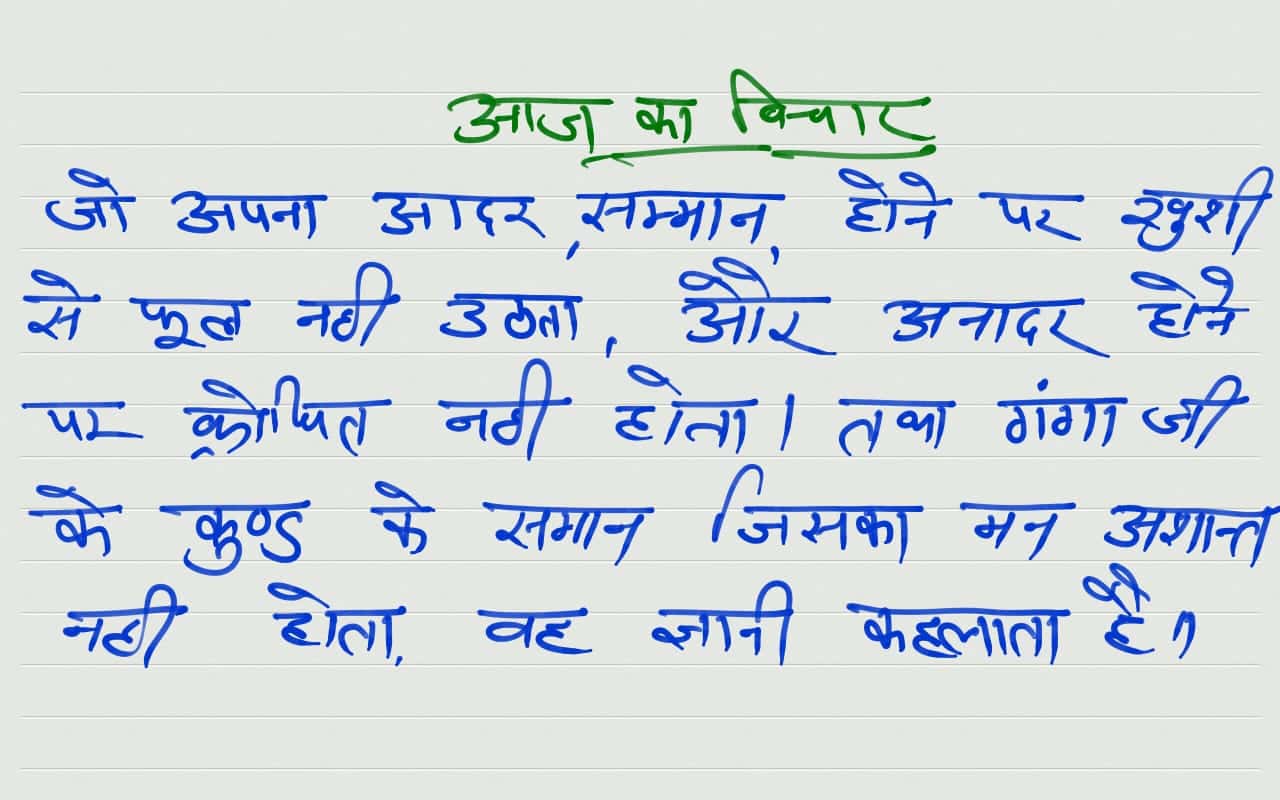 आज का विचार
जो अपना आदर ,सम्मान, होने पर खुशी
से फूल नही उठता, और अनादर होने
पर क्रोधित नही होता। तथा गंगा जी
के कुण्ड के समान जिसका मन अशान्त
नही होता, वह ज्ञानी कहलाता है॥